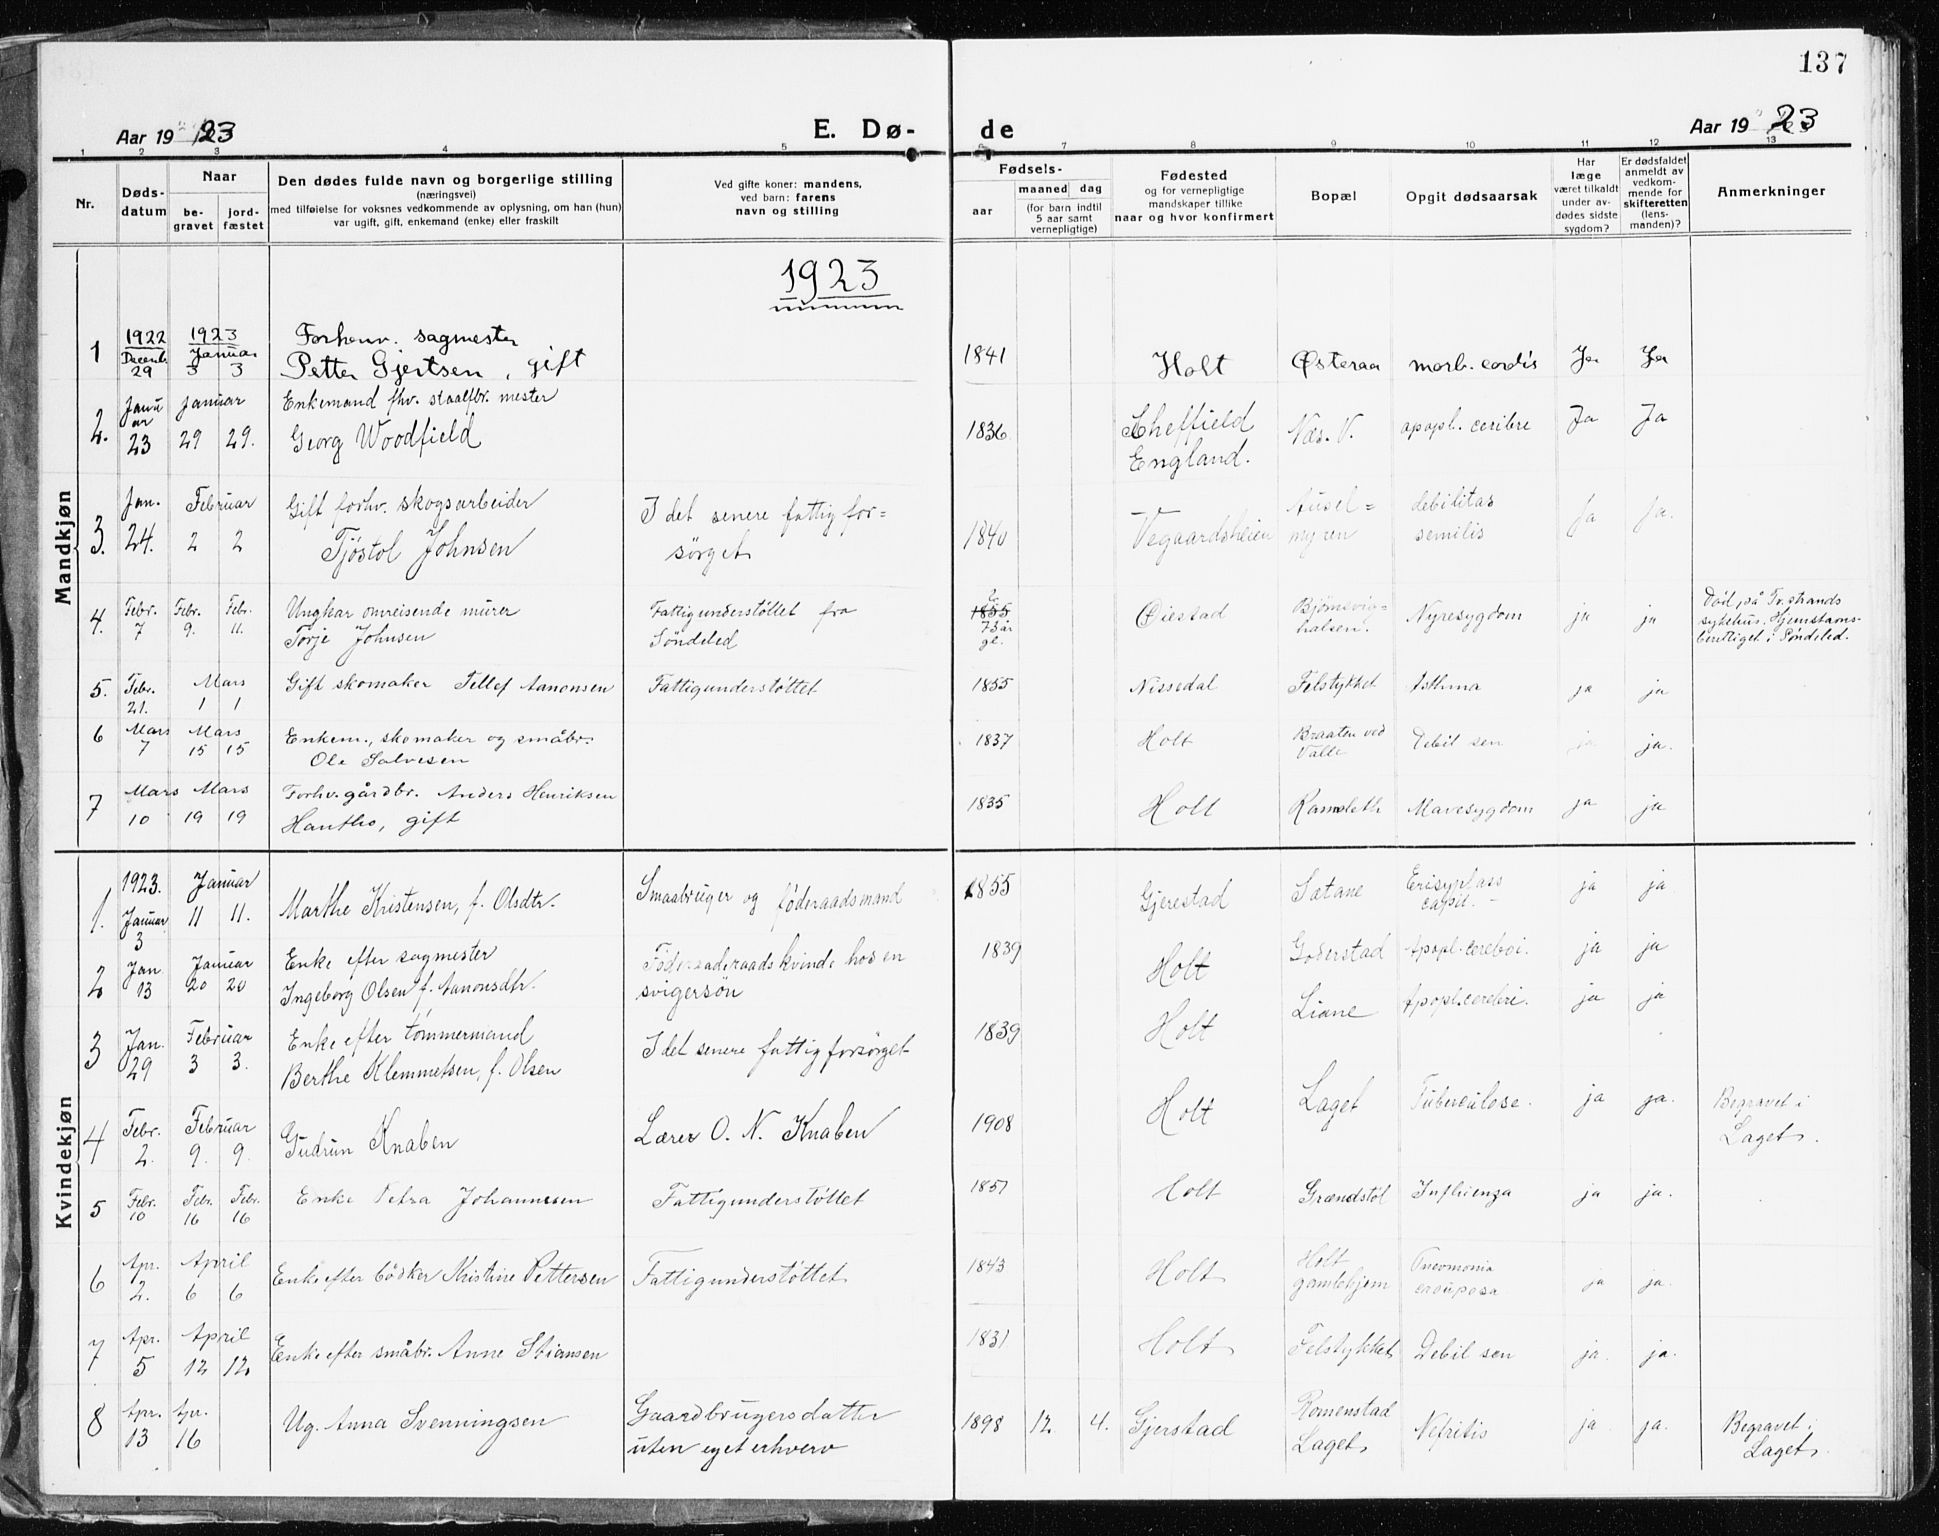 137
Aar 1923 E. Dø- de Aar 1923
1 2 3 4 5 6 7 8 9 10 11 12 13
Nr. Døds-datum Naar begravet jordfæstet Den dødes fulde navn og borgerlige stilling (næringsvei) med tilføielse for voksnes vedkommende av oplysning, om han (hun) var ugift, gift, enkemand (enke) eller fraskilt Ved gifte koner: mandens, ved barn: farens navn og stilling Fødsels- aar maaned dag (for barn indtil 5 aar samt vernepligtige) Fødested og for vernepligtige mandskaper tillike naar og hvor konfirmert Bopæl Opgit dødsaarsak Har læge været tilkaldt under avdødes sidste sygdom? Er dødsfaldet anmeldt av vedkommende for skifteretten (lensmanden)? Anmerkninger
1923
Mandkjøn
1 1922 Decemb. 29 1923 Januar 3 3 Forhenv. sagmester Petter Gjertsen, gift 1841 Holt Østeraa morb. cordis Ja Ja
2. Januar 23 Januar 29 29. Enkemand fhv. staalfbr. mester Georg Woodfield 1836 Sheffield England. Næs. V. apopl. ceribre Ja Ja
3. Jan. 24. Februar 2 2 Gift forhv. skogsarbeider Tjöstol Johnsen I det senere fattigforsørget 1840 Vegaardsheien Auselmyren debilitas semilis Ja Ja.
4. Febr. 7 Febr. 9. Febr. 11. Ungkar omreisende murer Torje Johnsen Fattigunderstøttet fra Søndeled 1855 73 årg. Øiestad Bjørnsvighalsen. Nyresygdom ja ja Død på Tvstrands sykehus. Hjemstamsberettiget i Søndeled.
5. Febr. 21. Mars 1 1 Gift skomaker Tellef Aanonsen Fattigunderstøttet 1855 Nissedal Felstykket Asthma ja ja
6 Mars 7 Mars 15 15 Enkem., skomaker og småbr. Ole Salvesen 1837 Holt Braaten ved Valle Debil sen ja ja.
7 Mars 10 Mars 19 19 Forhv. gårdbr. Anders Henriksen Hantho, gift 1835 Holt Ramsleth Mavesygdom ja ja
Kvindekjøn
1. 1923. Januar 3 Januar 11 11. Marthe Kristensen, f. Olsdtr. Smaabruger og føderaadsmand 1855 Gjerestad Sætane Erisyplass capit. ja ja
2 Jan 13 Januar 20 20 Enke efter sagmester Ingeborg Olsen f. Aanonsdtr. Føderaadskvinde hos en svigersøn 1839 Holt Goderstad Apopl. cerebri. ja ja
3 Jan. 29 Februar 3 3. Enke efter tömmermand Berthe Klemmetsen, f. Olsen I det senere fattigforsørget 1839 Holt Liane Apopl. cerebri. ja ja
4 Febr. 2. Februar 9. 9. Gudrun Knaben Lærer O. N. Knaben 1908 Holt Laget Tuberculose. ja ja. Begravet i Laget.
5 Febr. 10 Febr. 16 Febr. 16 Enke Petra Johannesen Fattigunderstøttet 1851 Holt Grændstøl Influenza ja ja.
6 Apr. 2. April 6 6 Enke efter bödker Kristine Pettersen Fattigunderstøttet 1843 Holt Holt gamlehjem Pneomonia crouposa ja ja.
7 Apr. 5 April 12 12. Enke efter småbr. Anne Stiansen 1831 Holt Felstykket Debil sen ja. ja.
8 Apr. 13 Apr. 16 Ug. Anna Svenningsen Gaardbrugersdatter uten eget erhverv 1898 12 4. Gjerstad Romenstad Laget Nefritis ja ja. Begravet i Laget.